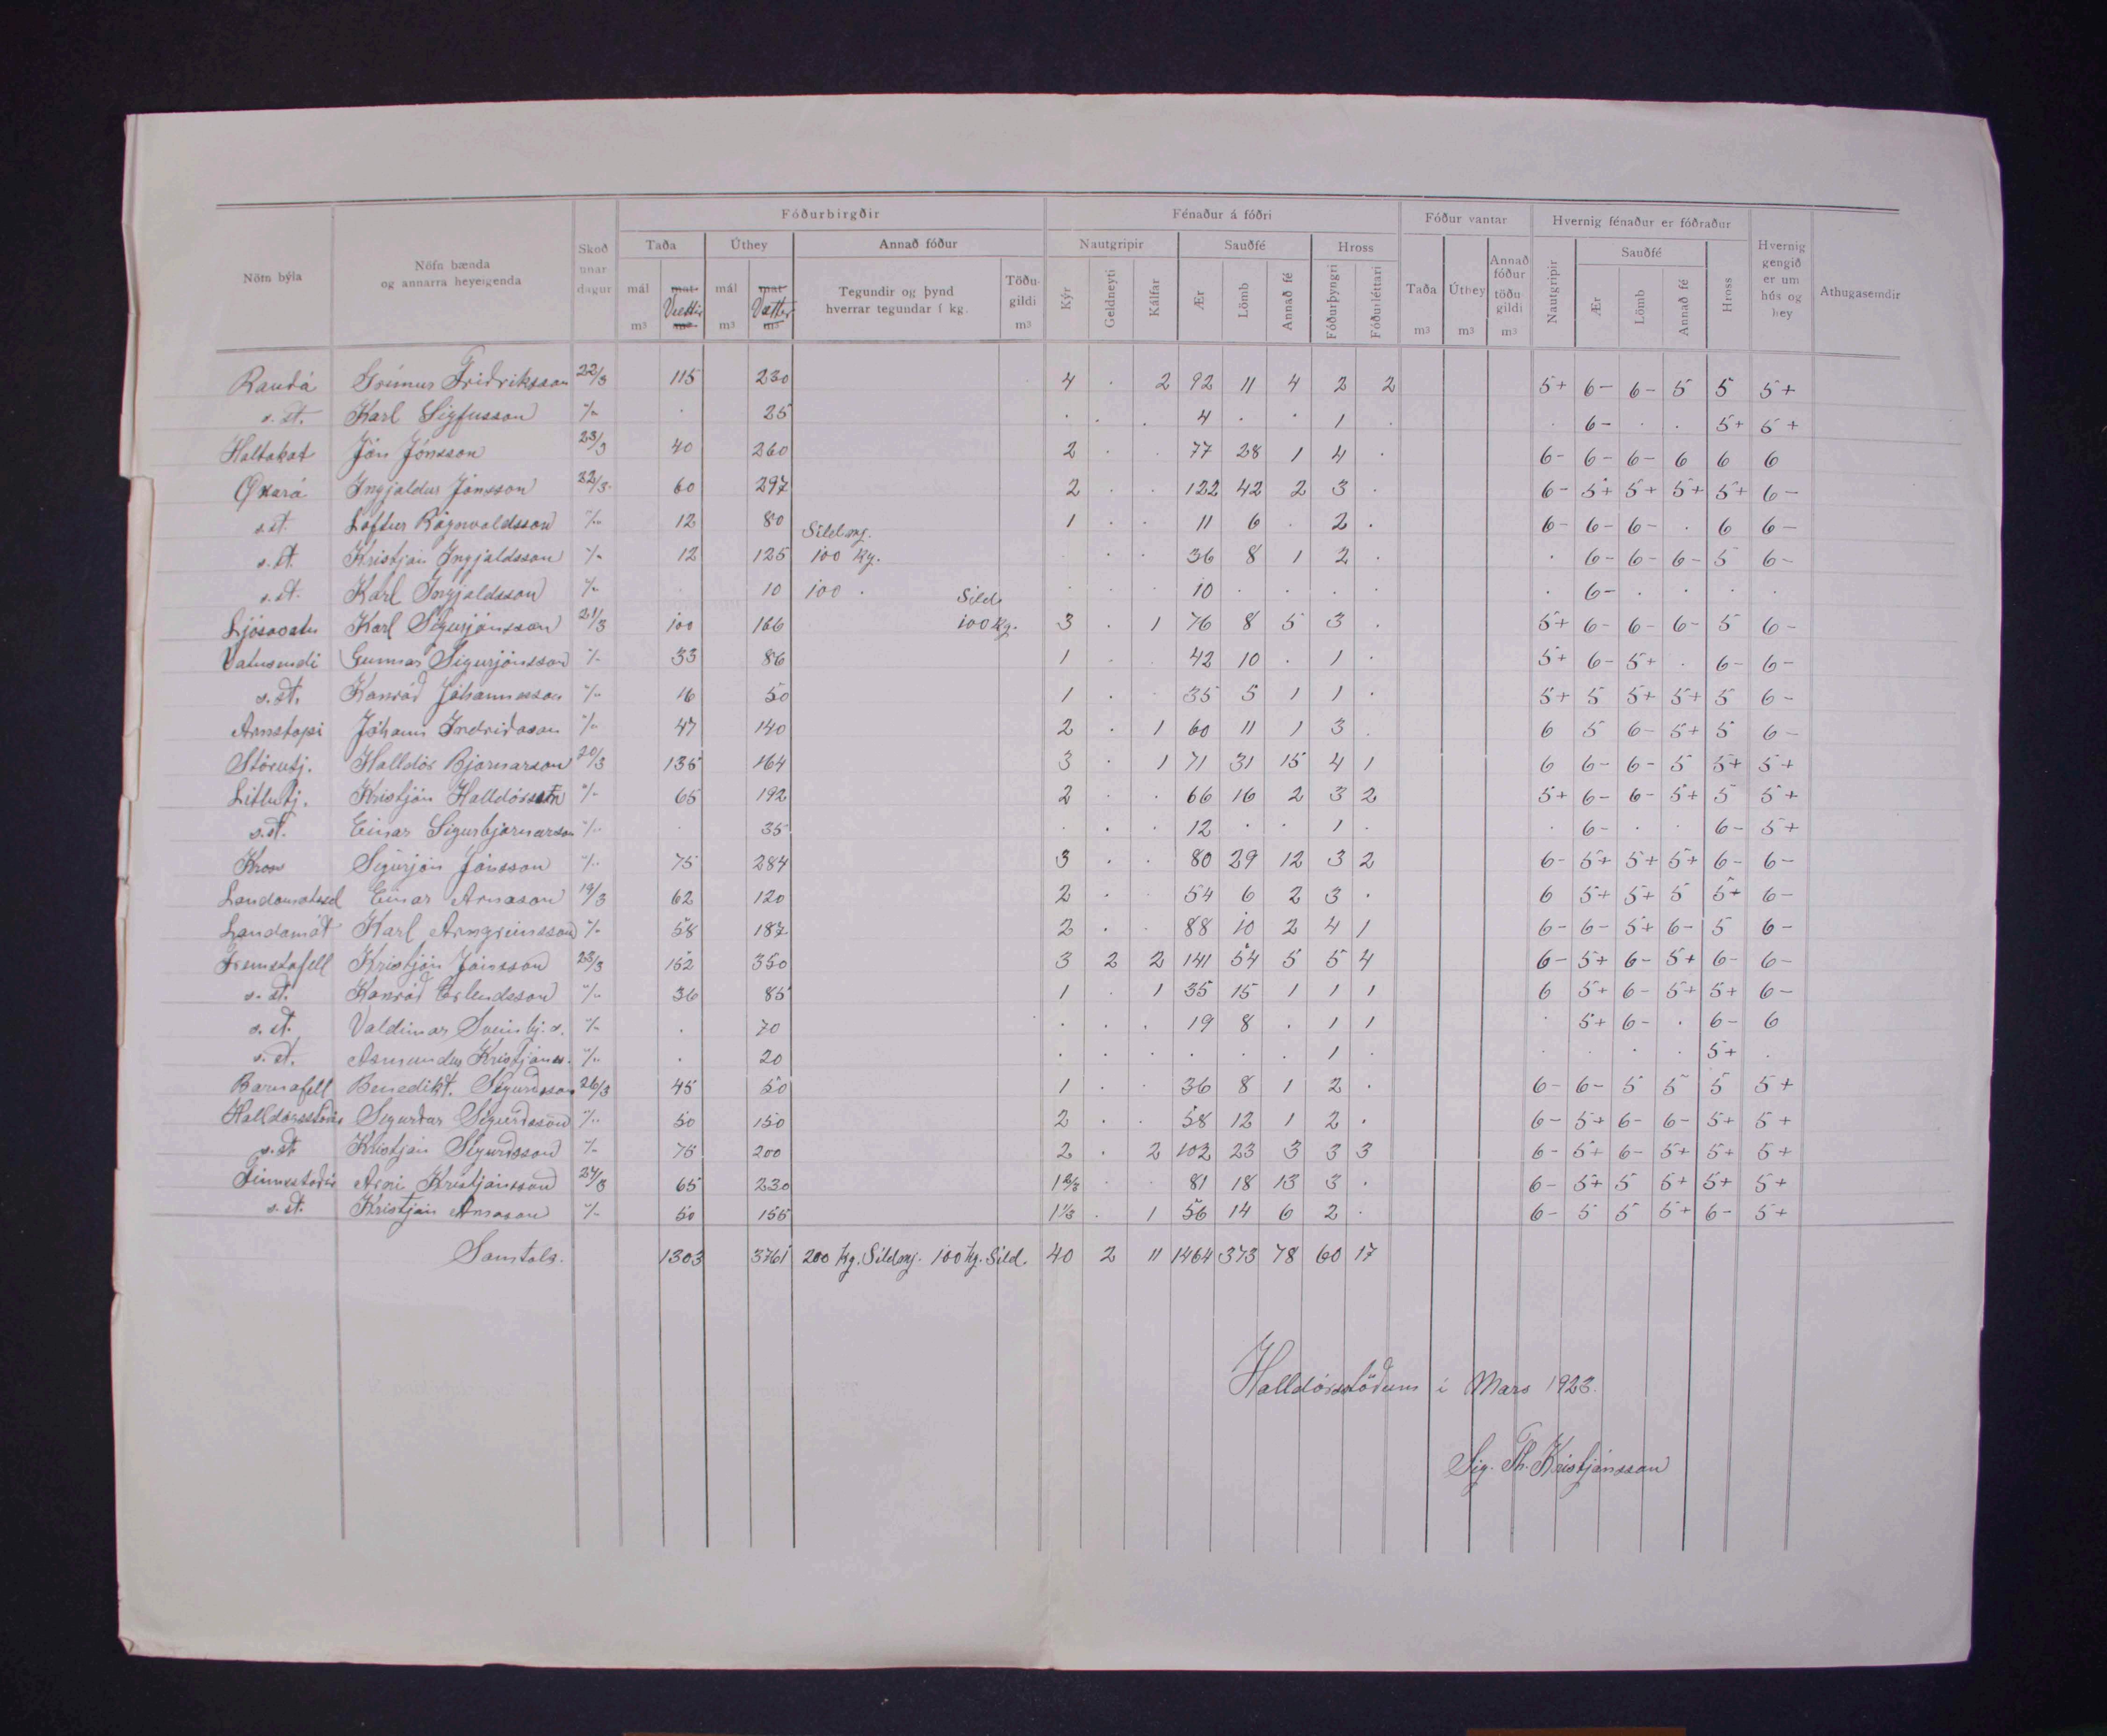 Fóðurbirgðir Fénaður á fóðri Fóður vantar Hvernig fénaður er fóðraður
Nöfn býla Nöfn bænda og annarra heyeigenda Skoðunardagur Taða Úthey Annað fóður Nautgripir Sauðfé Hross Taða Úthey Annað fóður töðugildi Nautgripir Sauðfé Hross Hvernig gengið er um hús og hey Athugasemdir
mál Vættir mál Vættir Tegundir og þynd hverrar tegundar í kg. Töðugildi Kýr Geldneyti Kálfar Ær Lömb Annað fé Fóðurþyngri Fóðurléttari Ær Lömb Annað fé
m3 m3 m3 m3 m3 m3 m3 m3
Rauðá Grímur Friðriksson 22/3 115 230 4 . 2 92 11 4 2 2 5+ 6- 6- 5 5 5+
s. st. Karl Sigfusson "/" . 25 . . . 4 . . 1 . . 6- . . 5+ 5+
Holtakot Jón Jónsson 23/3 40 260 2 . . 77 28 1 4 . 6- 6- 6- 6 6 6
Öxará Ingjaldur Jónsson 22/3 60 297 2 . . 122 42 2 3 . 6- 5+ 5+ 5+ 5+ 6-
s. st. Loftur Rögnvaldsson "/" 12 80 1 . . 11 6 . 2 . 6- 6- 6- . 6 6-
Síldmj.
s. st. Kristján Ingjaldsson "/" 12 125 100 kg. . . 36 8 1 2 . . 6- 6- 6- 5 6-
s. st. Karl Ingjaldsson "/" . 10 100 . . . . 10 . . . . . 6- . . . .
Síld
Ljósavatn Karl Sigurjónsson 21/3 100 166 100 kg. 3 . 1 76 8 5 3 . 5+ 6- 6- 6- 5 6-
Vatnsendi Gunnar Sigurjónsson "/" 33 86 1 . . 42 10 . 1 . 5+ 6- 5+ . 6- 6-
s. st. Konráð Jóhannesson "/" 16 50 1 . . 35 5 1 1 . 5+ 5 5+ 5+ 5 6-
Arnstapi Jóhann Indriðason "/" 47 140 2 . 1 60 11 1 3 . 6 5 6- 5+ 5 6-
Stórutj. Halldór Bjarnarson 20/3 135 164 3 . 1 71 31 15 4 1 6 6- 6- 5 5+ 5+
Litlutj. Kristján Halldórsson "/" 65 192 2 . . 66 16 2 3 2 5+ 6- 6- 5+ 5 5+
s. st. Einar Sigurbjarnarson "/" . 35 . . . 12 . . 1 . . 6- . . 6- 5+
Kross Sigurjón Jónsson "/" 75 284 3 . . 80 29 12 3 2 6- 5+ 5+ 5+ 6- 6-
Landamótssel Einar Árnason 19/3 62 120 2 . . 54 6 2 3 . 6 5+ 5+ 5 5+ 6-
Landamót Karl Arngrímsson "/" 58 187 2 . . 88 10 2 4 1 6- 6- 5+ 6- 5 6-
Fremstafell Kristján Jónsson 23/3 152 350 3 2 2 141 54 5 5 4 6- 5+ 6- 5+ 6- 6-
s. st. Konráð Erlendsson "/" 36 85 1 . 1 35 15 1 1 1 6 5+ 6- 5+ 5+ 6-
s. st. Valdimar Sveinbj.s. "/" . 70 . . . 19 8 . 1 1 . 5+ 6- . 6- 6
s. st. Ásmundur Kristjáns. "/" . 20 . . . . . . 1 . . . . . 5+ .
Barnafell Benedikt Sigurdsson 26/3 45 50 1 . . 36 8 1 2 . 6- 6- 5 5 5 5+
Halldórsstöðum Sigurður Sigurðsson "/" 50 150 2 . . 58 12 1 2 . 6- 5+ 6- 6- 5+ 5+
s. st. Kristján Sigurðsson "/" 75 200 2 . 2 102 23 3 3 3 6- 5+ 6- 5+ 5+ 5+
Finnsstöðum Árni Kristjánsson 24/3 65 230 1 2/3 . . 81 18 13 3 . 6- 5+ 5 5+ 5+ 5+
s. st. Kristján Árnason "/" 50 155 1 1/3 . 1 56 14 6 2 . 6- 5 5 5+ 6- 5+
Samtals. 1303 3761 200 kg. Síldmj. 100 kg. Síld. 40 2 11 1464 373 78 60 17
Halldórsstöðum í Mars 1923.
Sig. Th. Kristjánsson